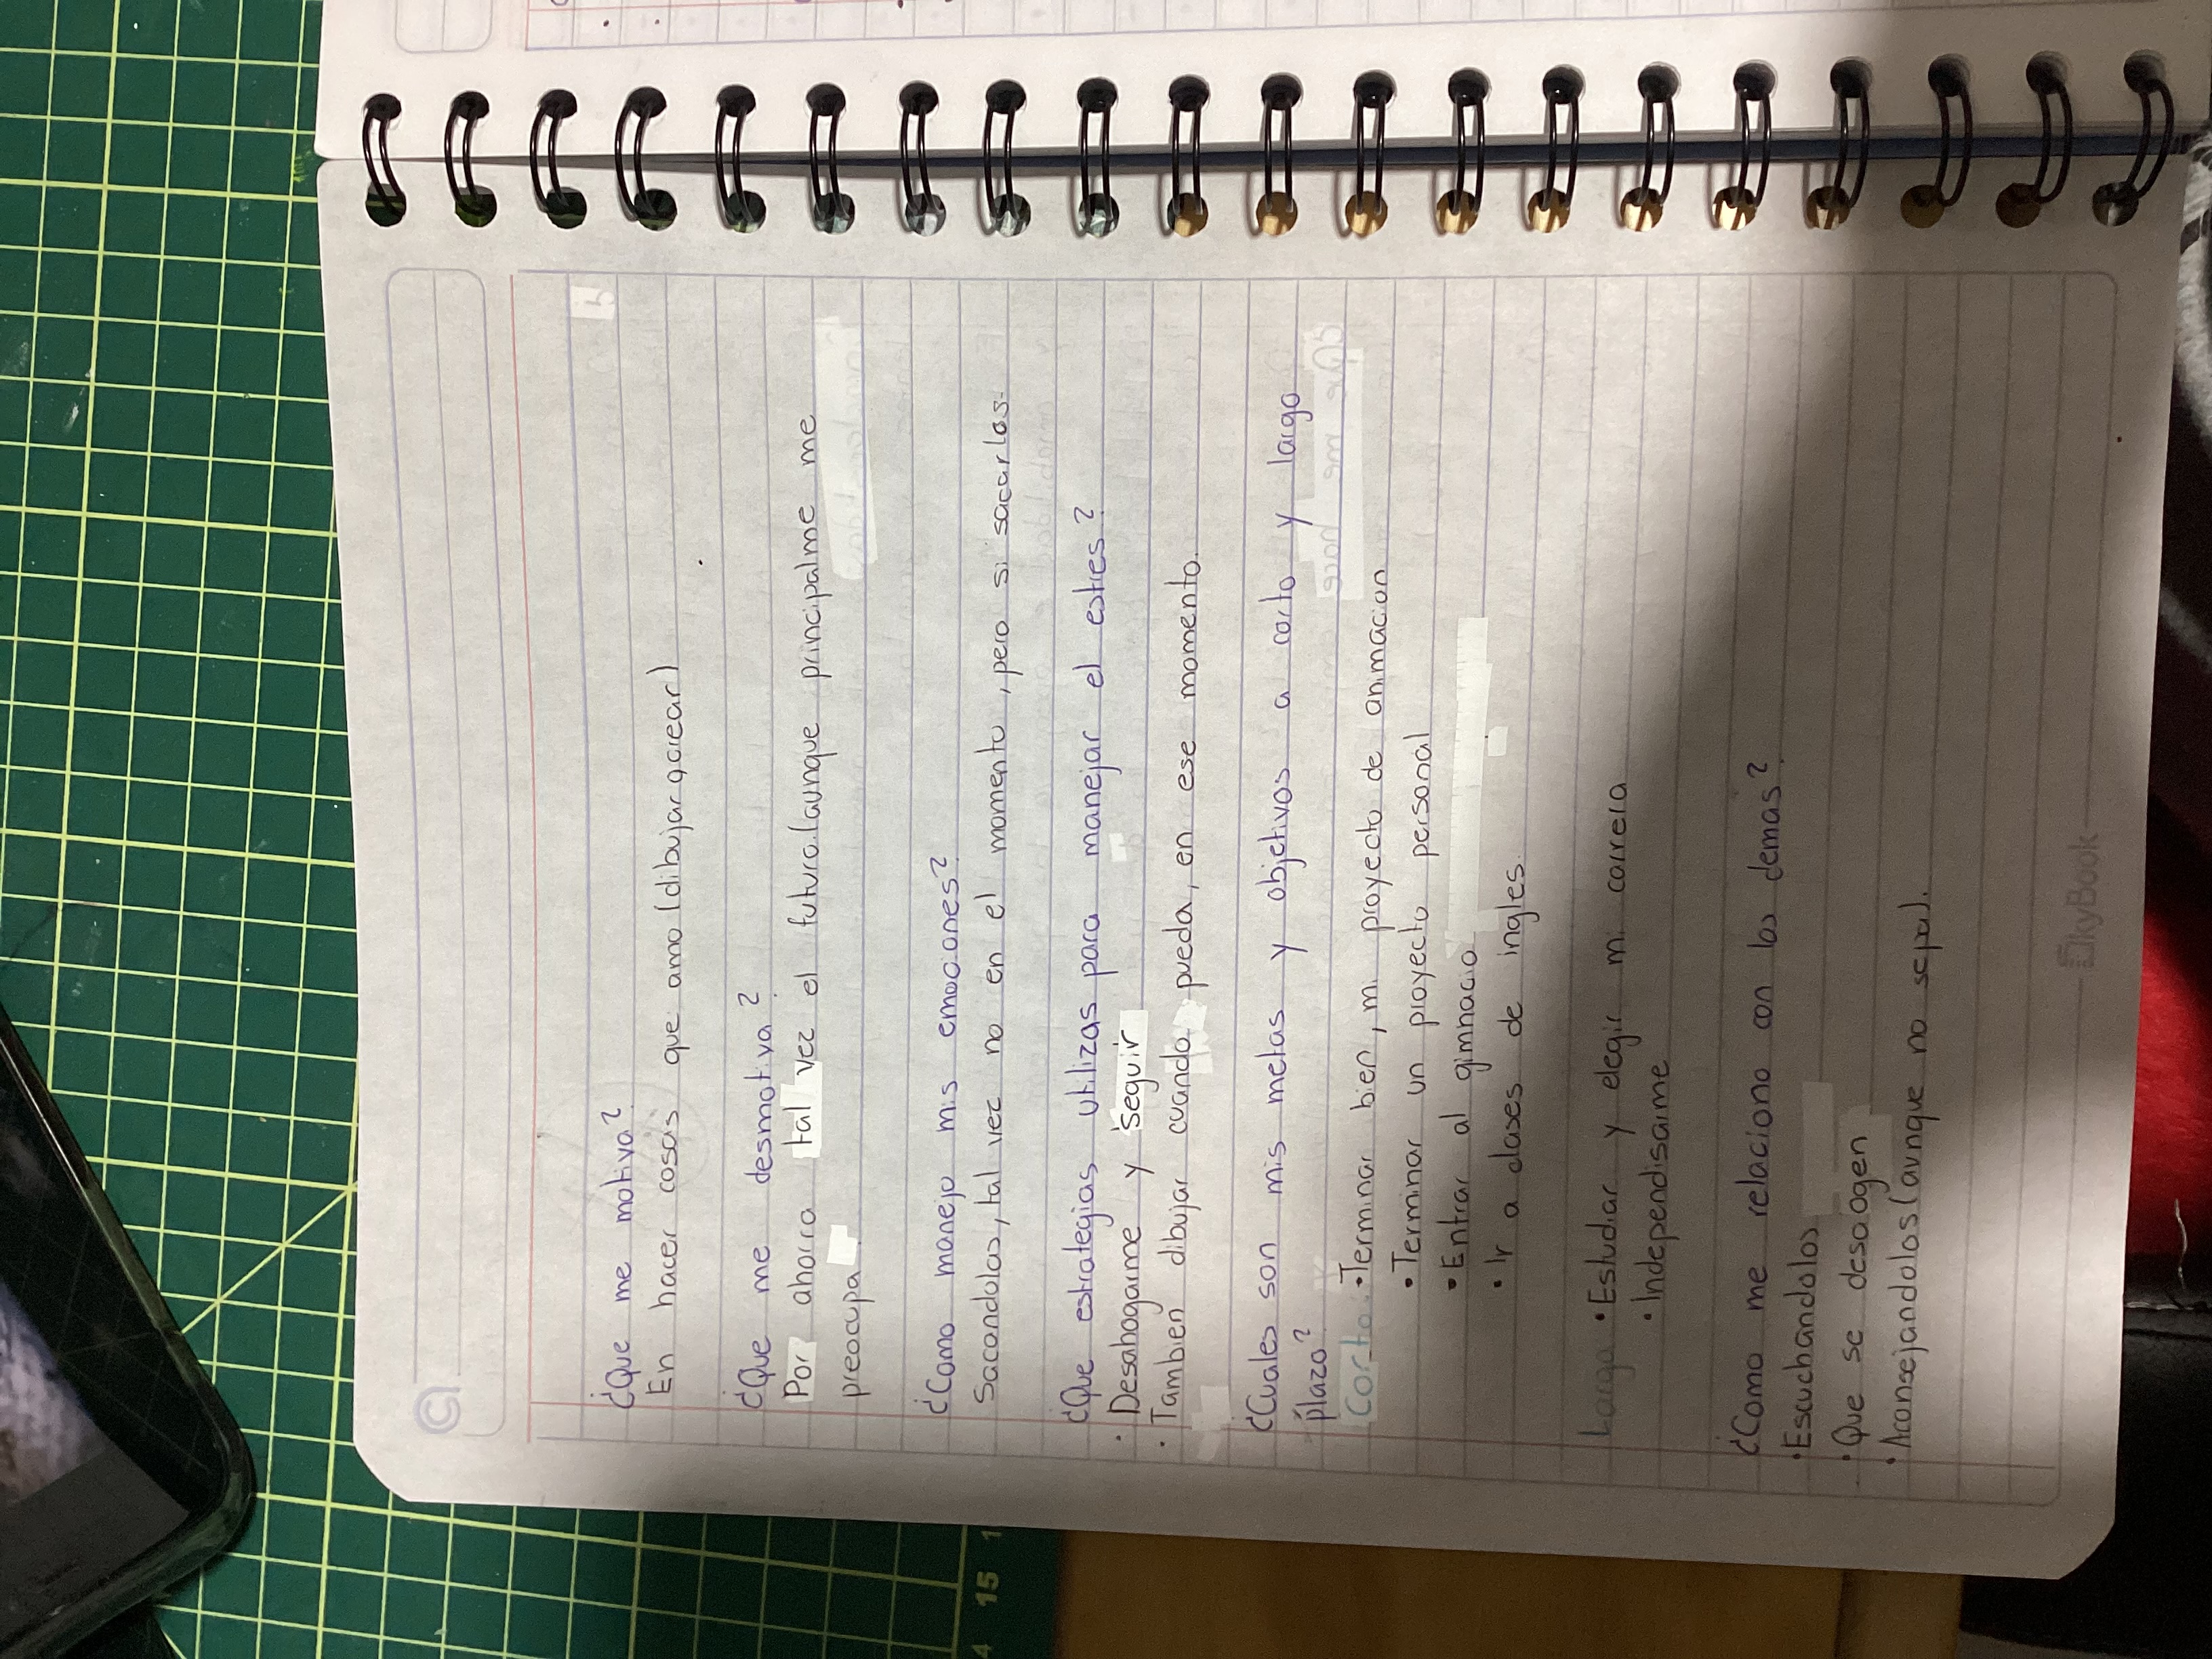 ¿Que me motiva?
En hacer cosas que amo (dibujar o crear)
¿Que me desmotiva?
Por ahorra tal vez el futuro (aunque principalme me
preocupa
¿Como manejo mis emociones?
Sacandolas, tal vez no en el momento, pero si sacarlas.
¿Que estrategias utilizas para manejar el estres?
· Desahogarme y seguir
· Tambien dibujar cuando pueda, en ese momento.
¿Cuales son mis metas y objetivos a corto y largo
plazo?
Corto: • Terminar bien, mi proyecto de animacion
• Terminar un proyecto personal
• Entrar al gimnacio
• Ir a clases de ingles.
Largo • Estudiar y elegir mi carrera
• Independisarme
¿Como me relaciono con los demas?
• Escuchandolos
• Que se desaogen
• Aconsejandolos (aunque no sepa).
SkyBook
15